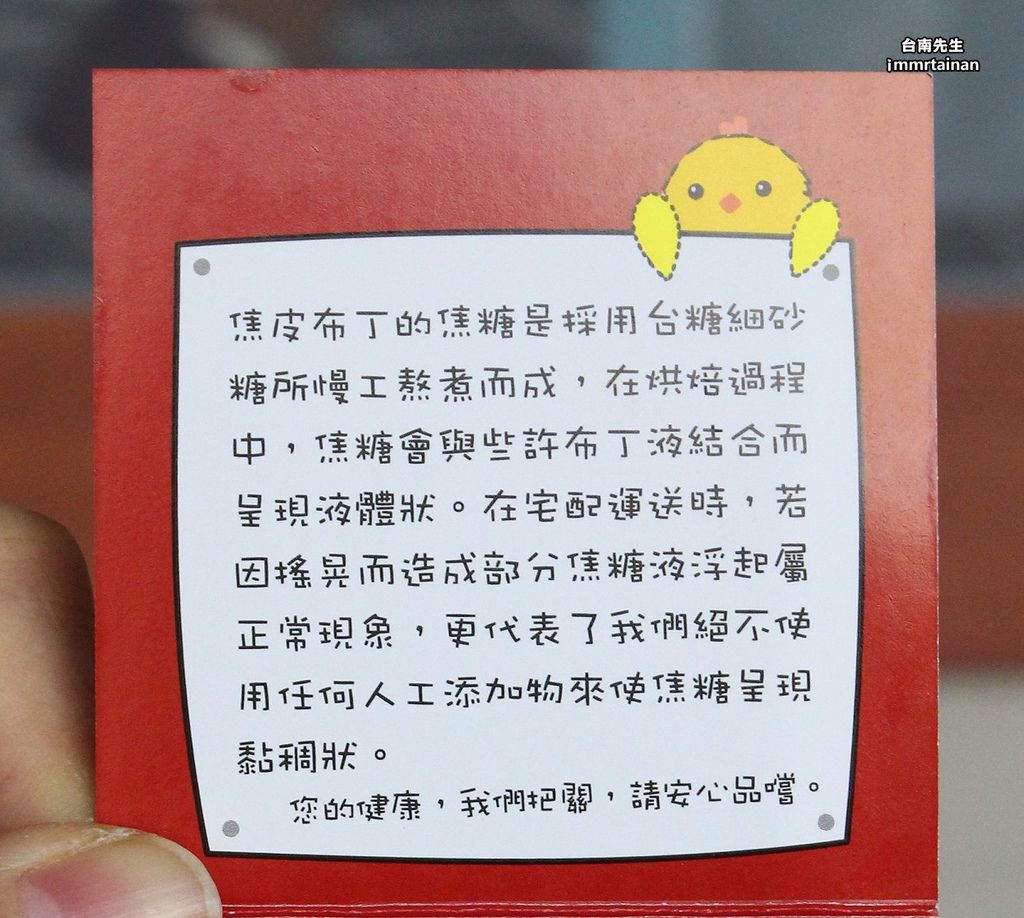 台南先生
immrtainan
焦皮布丁的焦糖是採用台糖細砂
糖所慢工熬煮而成，在烘焙過程
中，焦糖會與些許布丁液結合而
呈現液體狀。在宅配運送時，若
因搖晃而造成部分焦糖液浮起屬
正常現象，更代表了我們絕不使
用任何人工添加物來使焦糖呈現
黏稠狀。
您的健康，我們把關，請安心品嚐。